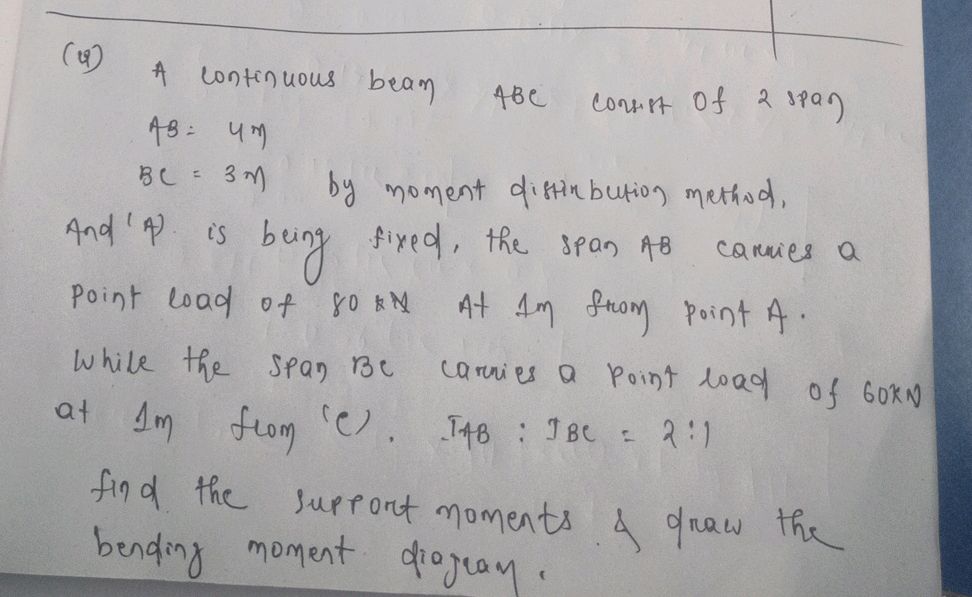 (4)
A continuous beam ABC consist of 2 span
AB = 4m
BC = 3m by moment distribution method,
And 'A' is being fixed, the span AB carries a
point load of 80 kN At 1m from point A.
While the span BC carries a point load of 60kN
at 1m from 'C'. IAB : IBC = 2:1
find the support moments & draw the
bending moment diagram.